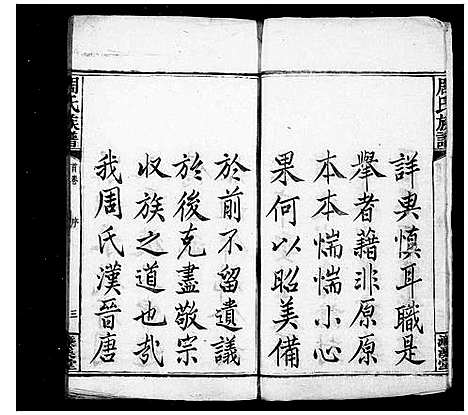 詳與慎耳職是
舉者藉非原原
本本惴惴小心
果何以昭美備
於前不留遺議
於後克盡敬宗
收族之道也哉
我周氏漢晉唐
周氏族譜
首卷
序
三
周氏族譜